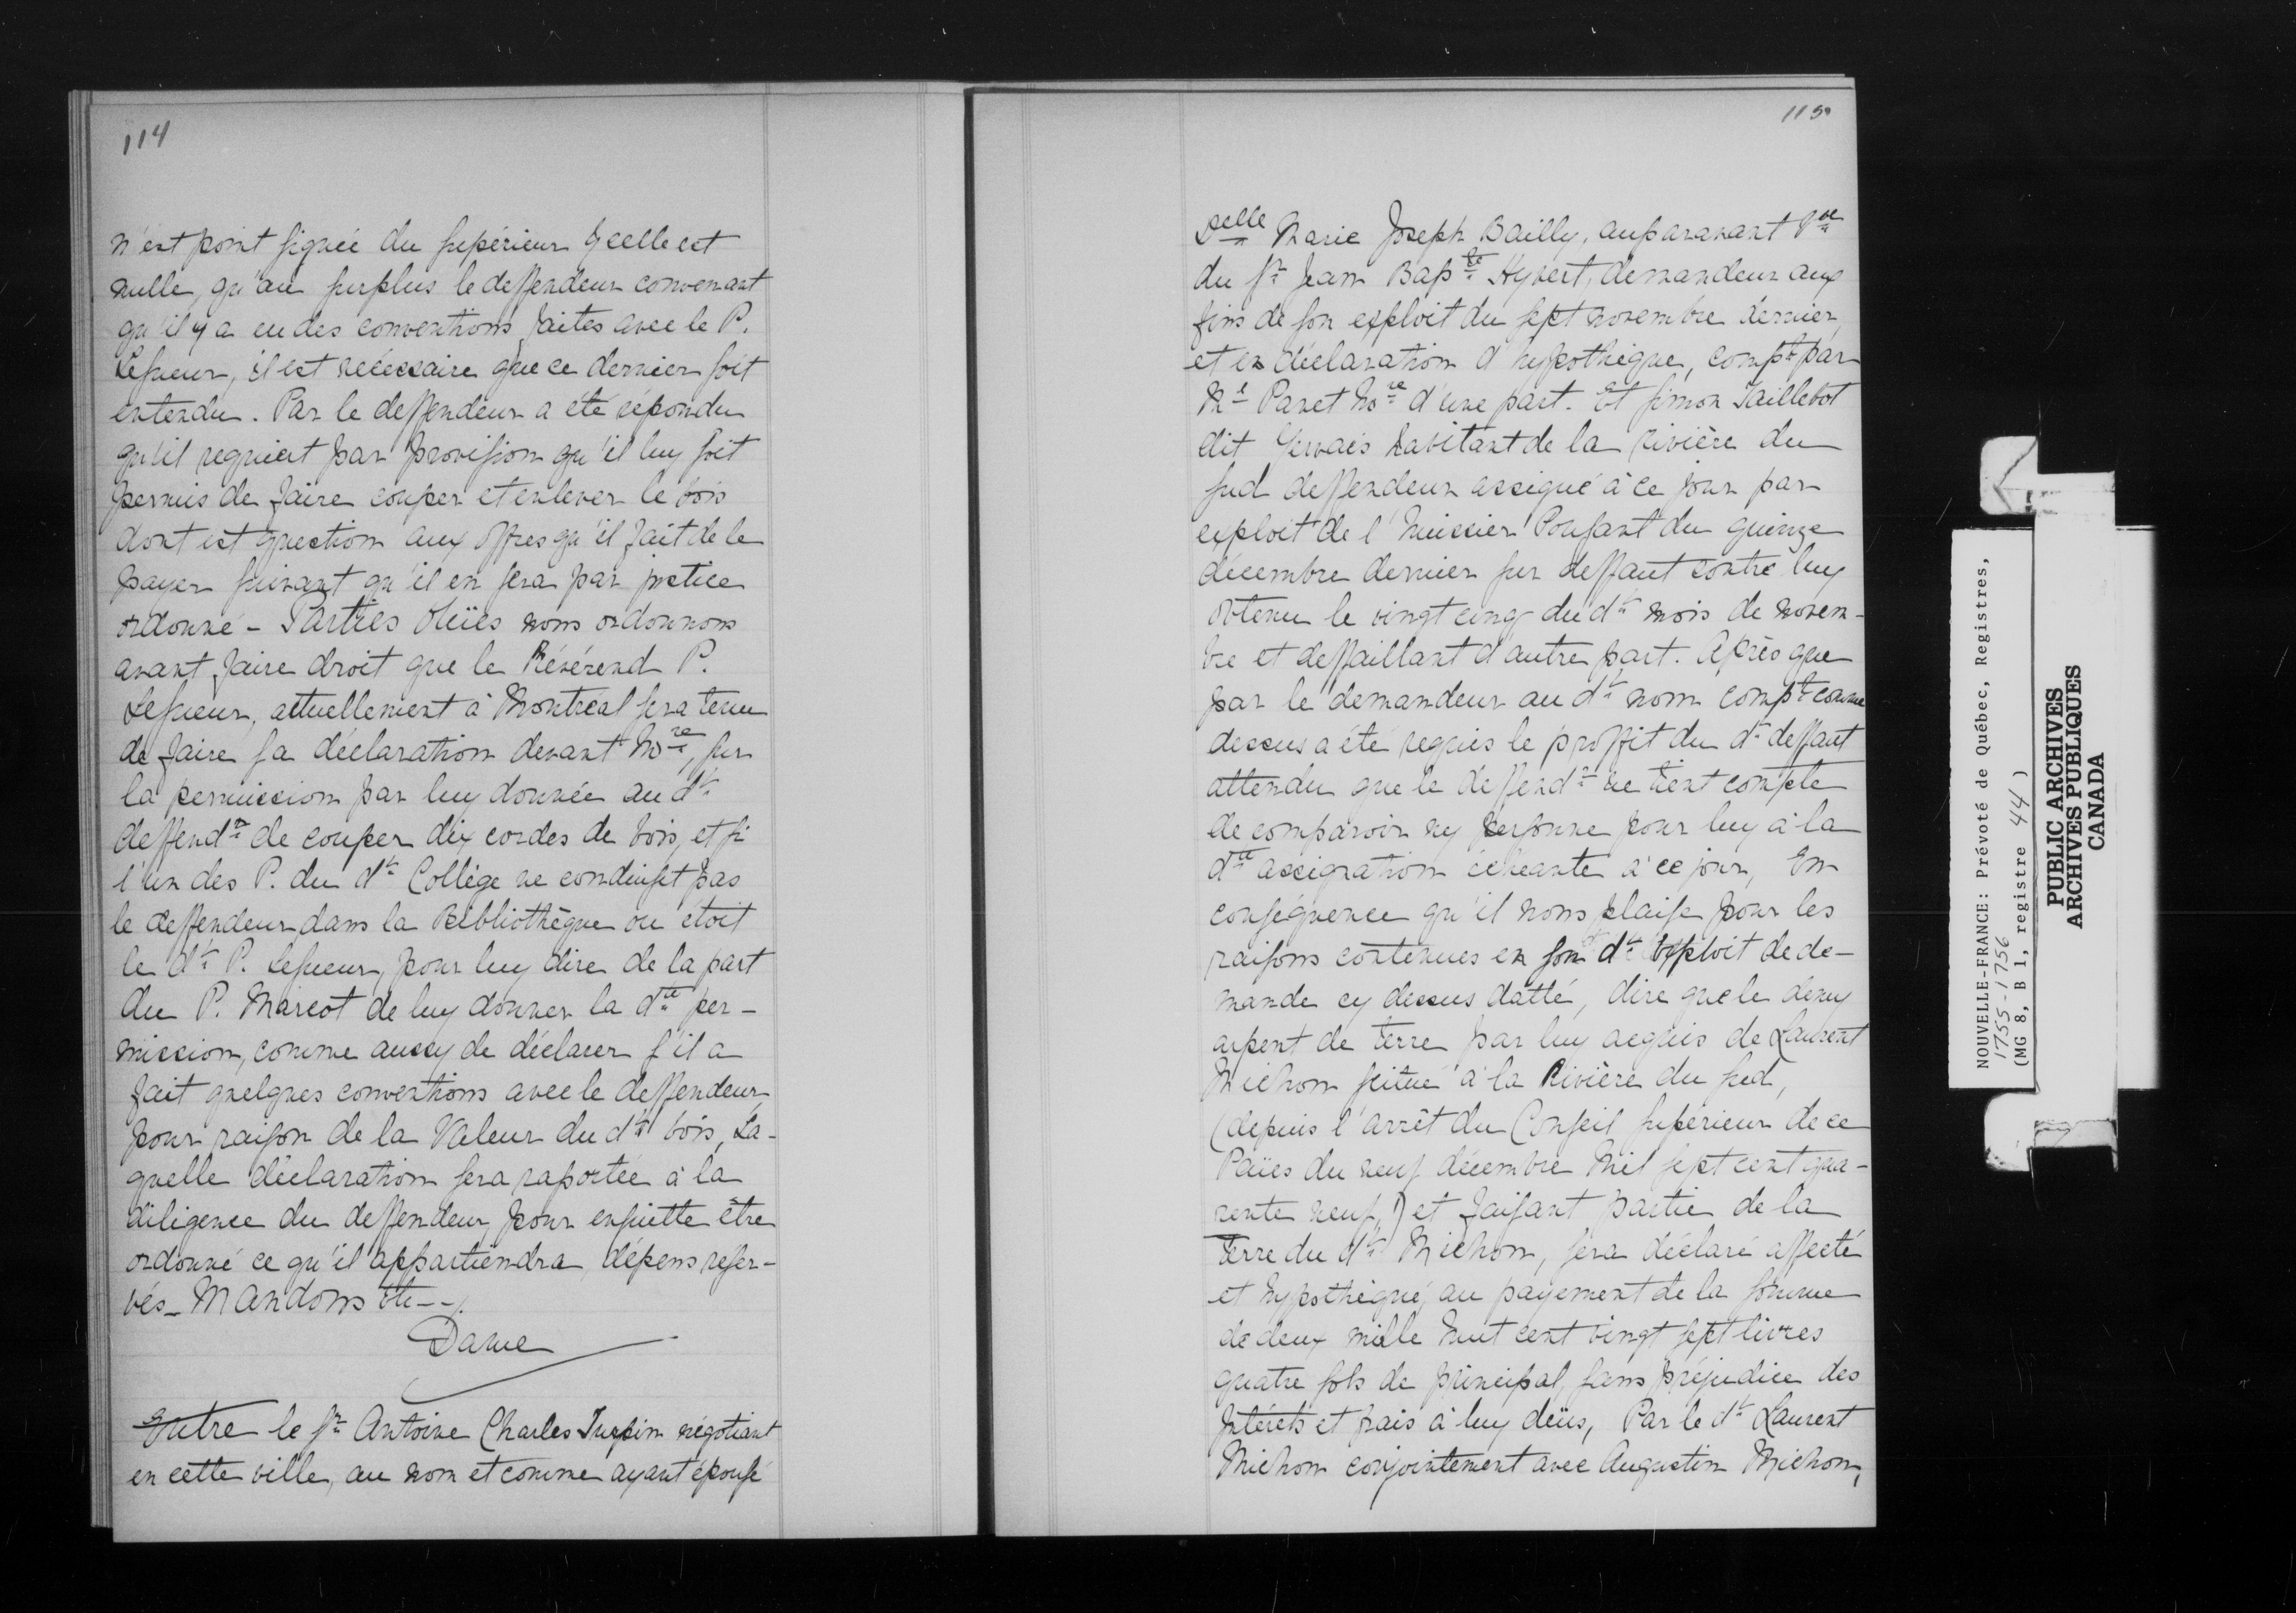 114
n'est point signée du supérieur Ycelle est
nulle, qu'au surplus le deffendeur convenant
qu'il y a eu des conventions faites avec le P.
Lesueur, il est nécessaire que ce dernier soit
entendu. Par le deffendeur a été répondu
qu'il requiert par provision qu'il luy soit
permis de faire couper et enlever le bois
dont est question aux offres qu'il fait de le
payer suivant qu'il en sera par justice
ordonné - Parties Oüies nous ordonnons
avant faire droit que le Révérend P.
Lesueur, actuellement à Montréal sera tenu
de faire sa déclaration devant No.re, sur
la permission par luy donnée au d.t
deffend.r de couper dix cordes de bois, et si
l'un des P. du d.t Collège ne conduisit pas
le deffendeur dans la Bibliothèque ou étoit
le d.t P. Lesueur, pour luy dire de la part
du P. Marcot de luy donner la d.te per-
mission, comme aussy de déclarer s'il a
fait quelques conventions avec le deffendeur,
pour raison de la Valeur du d.t bois, La-
quelle déclaration sera raportée à la
diligence du deffendeur, pour ensuitte être
ordonné ce qu'il appartiendra, dépens reser-
vés - Mandons etc --
Daine
Entre le S.r Antoine Charles Turpin négotiant
en cette ville, au nom et comme ayant épousé
115
D.elle Marie Joseph Bailly, auparavant V.ve
du S.r Jean Bap.te Hyvert, demandeur aux
fins de son exploit du sept novembre dernier,
et en déclaration d'hypothèque, comp.t par
M.e Panet No.re d'une part. Et Simon Taillebot
dit Gervais habitant de la Rivière du
sud deffendeur assigné à ce jour par
exploit de l'huissier Pousant du quinze
décembre dernier sur deffaut contre luy
obtenu le vingt cinq du d.t mois de novem-
bre et deffaillant d'autre part. Après que
par le demandeur au d.t nom comp.t comme
dessus a été requis le proffit du d.t deffaut
attendu que le deffend.r ne tient compte
de comparoir ny personne pour luy à la
d.te assignation échéante à ce jour, En
conséquence qu'il nous plaise pour les
raisons contenues en son d.t Exploit de de-
mande cy dessus datté, dire que le demy
arpent de terre par luy acquis de Laurent
Michon scitué à la Rivière du sud,
(depuis l'arrêt du Conseil supérieur de ce
Païes du neuf décembre Mil sept cent qua-
rente neuf,) et faisant partie de la
terre du d.t Michon, sera déclaré affecté
et hypothéqué, au payement de la somme
de deux mille huit cent vingt sept livres
quatre sols de principal, sans préjudice des
Intérets et frais à luy deüs, Par le d.t Laurent
Michon conjointement avec Augustin Michon,
NOUVELLE-FRANCE: Prévoté de Québec, Registres,
1755-1756
(MG 8, B 1, registre 44)
PUBLIC ARCHIVES
ARCHIVES PUBLIQUES
CANADA